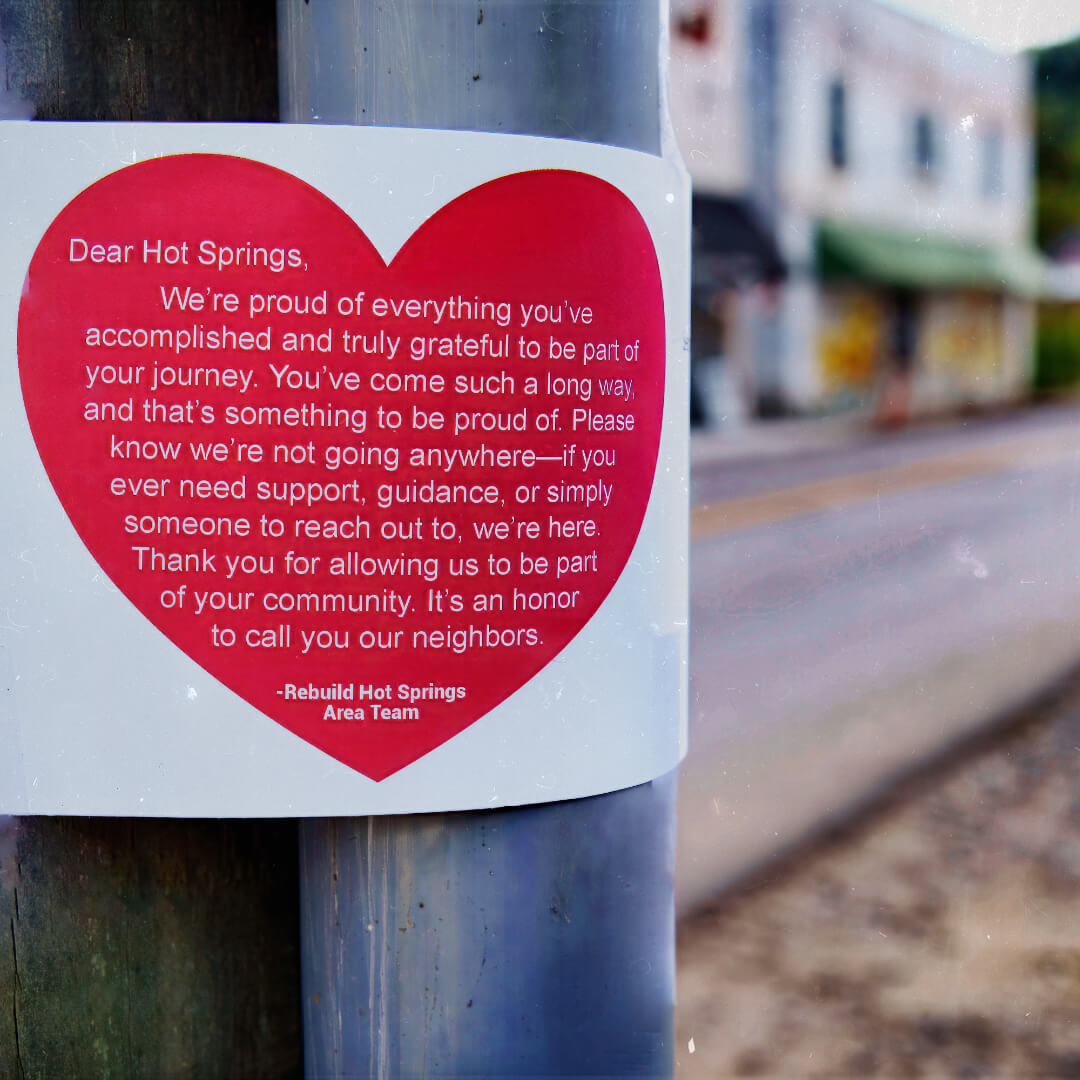 Dear Hot Springs,
We're proud of everything you've
accomplished and truly grateful to be part of
your journey. You've come such a long way,
and that's something to be proud of. Please
know we're not going anywhere—if you
ever need support, guidance, or simply
someone to reach out to, we're here.
Thank you for allowing us to be part
of your community. It's an honor
to call you our neighbors.
-Rebuild Hot Springs
Area Team